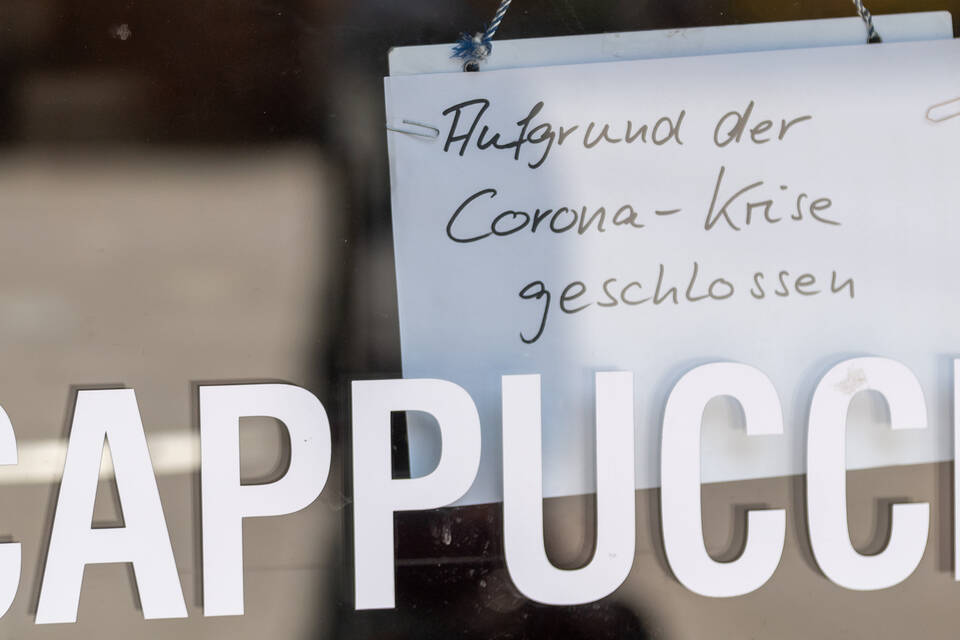 Aufgrund der
Corona-Krise
geschlossen
CAPPUCCI